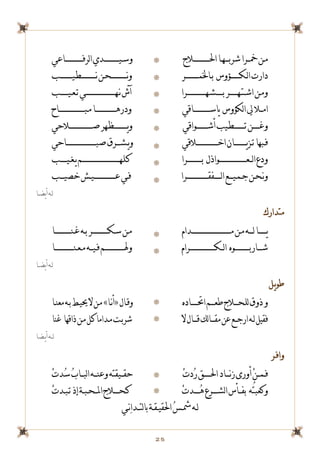 من خمرا شربها الحلاج ۞ وسيدي الرفاعي
دارت الكؤوس بالخمر ۞ ونحن نطيب
ومن اشتهر بشهرا ۞ نهى تعيب
املا لي الكؤوس باساقي ۞ ودرها مباح
وعن تطيب أشواقي ۞ ويظهر صلاحي
فبها تزان اخلاقي ۞ ويشرق صباحي
ودع العواذل برا ۞ كلهم بغيب
ونحن جميع الفقرا ۞ في عيش خصيب
له أيضا
متدارك
يا له من مدام ۞ من سكر به غنا
شاربوه الكرام ۞ ولهم فيه معنا
له أيضا
طويل
وذوق للحلاج طعم اتحاده ۞ وقال «أنا» من لا يحيط به معنا
فقيل له ارجع عن مقالك قال لا ۞ شربت مداما كل من ذاقها غنا
له أيضا
وافر
فمن أورى زناد الحق ردت ۞ حقيقته وعنه الباب سدت
وكفته بفأس الشرع هدت ۞ كحلاج المحبة إذ تبدت
له شمس الحقيقة بالتداني
25